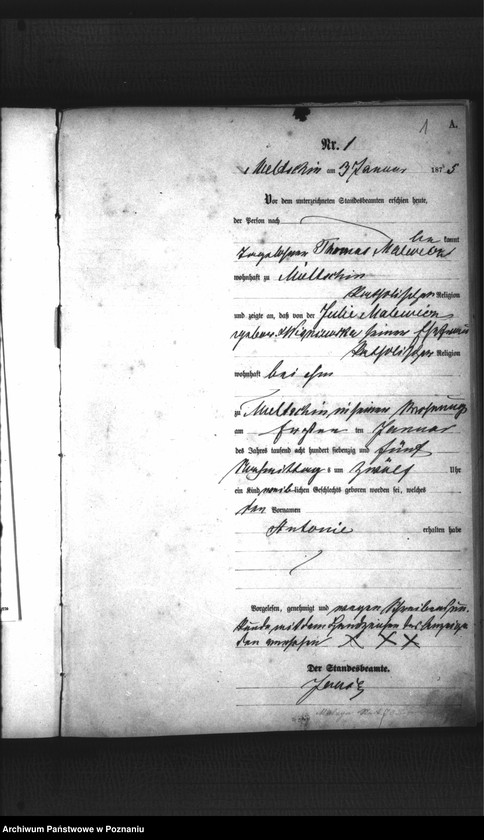 1 A.
Nr. 1
Meltschin am 3 Januar 1875
Vor dem unterzeichneten Standesbeamten erschien heute,
der Person nach
be kannt
Tagelöhner Thomas Malewicz
wohnhaft zu Meltschin
katholischer Religion
und zeigte an, daß von der Julie Malewicz
geborne seiner Ehefrau
katholischer Religion
wohnhaft bei ihm
zu Meltschin in seiner Wohnung
am Ersten ten Januar
des Jahres tausend acht hundert siebenzig und fünf
Vormittags um zwölf Uhr
ein Kind weiblichen Geschlechts geboren worden sei, welches
den Vornamen
Antonie erhalten habe
Vorgelesen, genehmigt und wegen Schreibensun
kunde mit dem Handzeichen des Anzeigen
den versehen X X X
Der Standesbeamte.
Archiwum Państwowe w Poznaniu